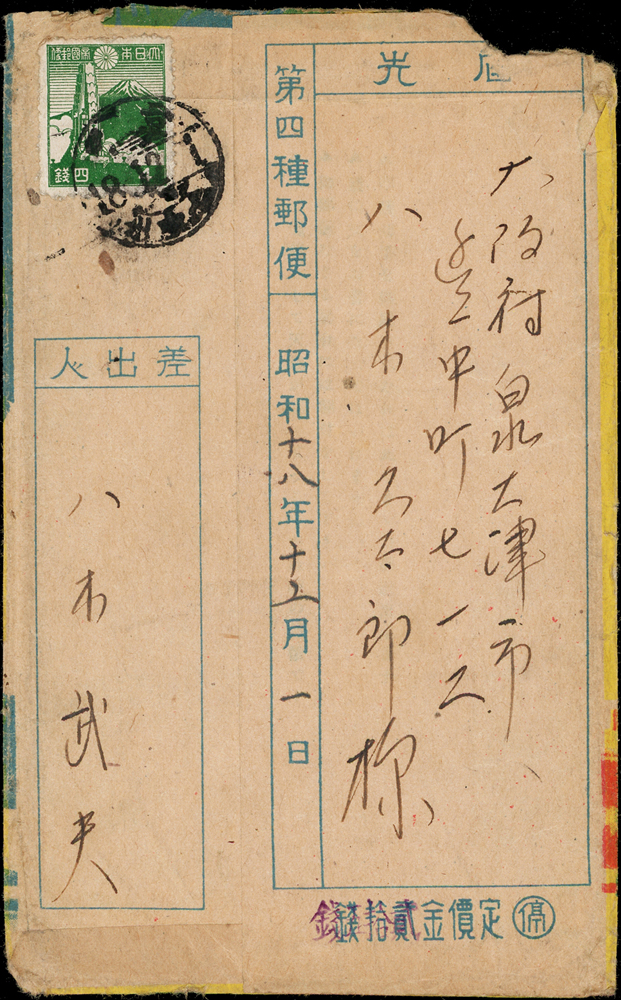 大日本帝國郵便
四錢
先
大阪府泉大津市、
中町七一二
八木久太郎様
第四種郵便
昭和十八年十二月一日
差出人
八木武夫
停 定價金貳拾錢